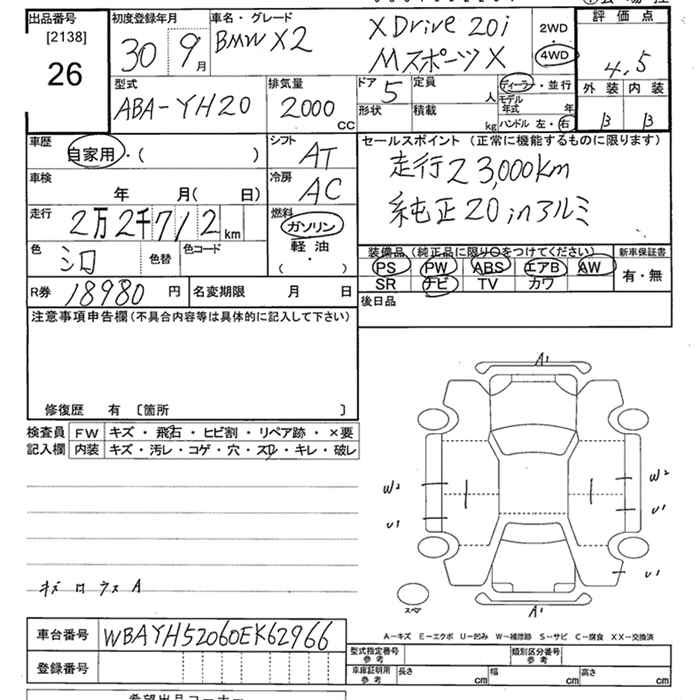 出品番号
[2138]
26
初度登録年月
30 9月
車名・グレード
BMW X2
X Drive 20i
Mスポーツ X
2WD
4WD
評価点
4.5
外装 内装
B B
型式
ABA-YH20
排気量
2000
CC
ドア
5
形状
定員
人
積載
kg
ディーラー・並行
モデル年式 年
ハンドル 左・右
車歴
自家用・( )
シフト
AT
セールスポイント (正常に機能するものに限ります)
走行23,000km
純正20inアルミ
車検
年 月( 日)
冷房
AC
走行
2万2千712
km
燃料
ガソリン
軽油
( ・ )
色
シロ
色替
色コード
装備品 (純正品に限り○をつけてください)
PS PW ABS エアB AW
SR ナビ TV カワ
新車保証書
有・無
R券 18980 円
名変期限 月 日
後日品
注意事項申告欄(不具合内容等は具体的に記入して下さい)
修復歴 有 [箇所 ]
検査員記入欄
FW キズ・飛石・ヒビ割・リペア跡・×要
内装 キズ・汚レ・コゲ・穴・スレ・キレ・破レ
A1
W2
W2
U1
U1
U1
キズ ロ ウス A
スペア
A1
A-キズ E-エクボ U-凹み W-補修跡 S-サビ C-腐食 XX-交換済
車台番号 WBAYH52060EK62966
登録番号
型式指定番号
参考
類別区分番号
参考
車庫証明用
参考
長さ cm
幅 cm
高さ cm
希望出品コーナー